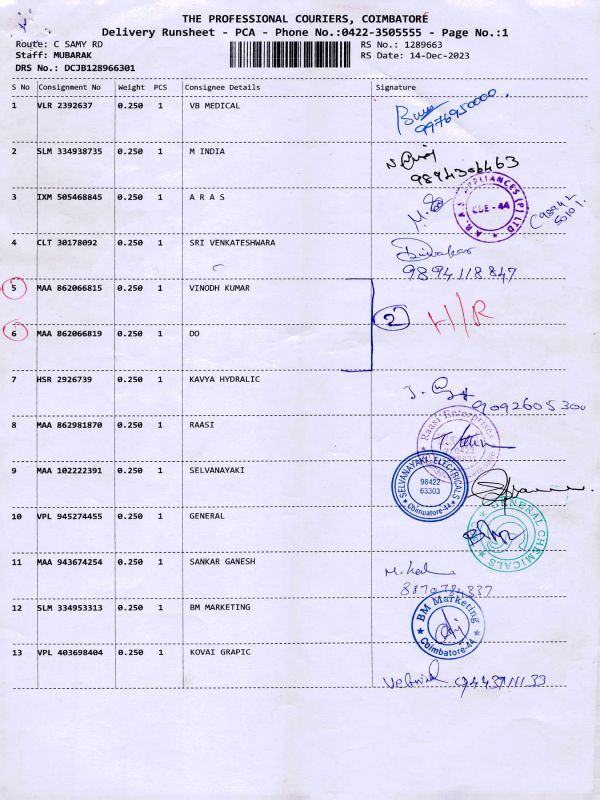 THE PROFESSIONAL COURIERS, COIMBATORE
Delivery Runsheet - PCA - Phone No.:0422-3505555 - Page No.:1
Route: C SAMY RD RS No.: 1289663
Staff: MUBARAK RS Date: 14-Dec-2023
DRS No.: DCJB128966301
S No Consignment No Weight PCS Consignee Details Signature
1 VLR 2392637 0.250 1 VB MEDICAL
9976950000
2 SLM 334938735 0.250 1 M INDIA
9894306463
3 IXM 505468845 0.250 1 A R A S
A.R.A.S APPLIANCES (P) LTD
CBE - 44
4 CLT 30178092 0.250 1 SRI VENKATESHWARA
9894118847
5 MAA 862066815 0.250 1 VINODH KUMAR
2 H/R
6 MAA 862066819 0.250 1 DO
7 HSR 2926739 0.250 1 KAVYA HYDRALIC
9092605300
8 MAA 862981870 0.250 1 RAASI
Raasi Enterprises
9 MAA 102222391 0.250 1 SELVANAYAKI
SELVANAYAKI ELECTRICALS
98422
63303
Coimbatore-44
10 VPL 945274455 0.250 1 GENERAL
GENERAL CHEMICALS
11 MAA 943674254 0.250 1 SANKAR GANESH
8870784337
12 SLM 334953313 0.250 1 BM MARKETING
BM Marketing
Coimbatore-44
13 VPL 403698404 0.250 1 KOVAI GRAPIC